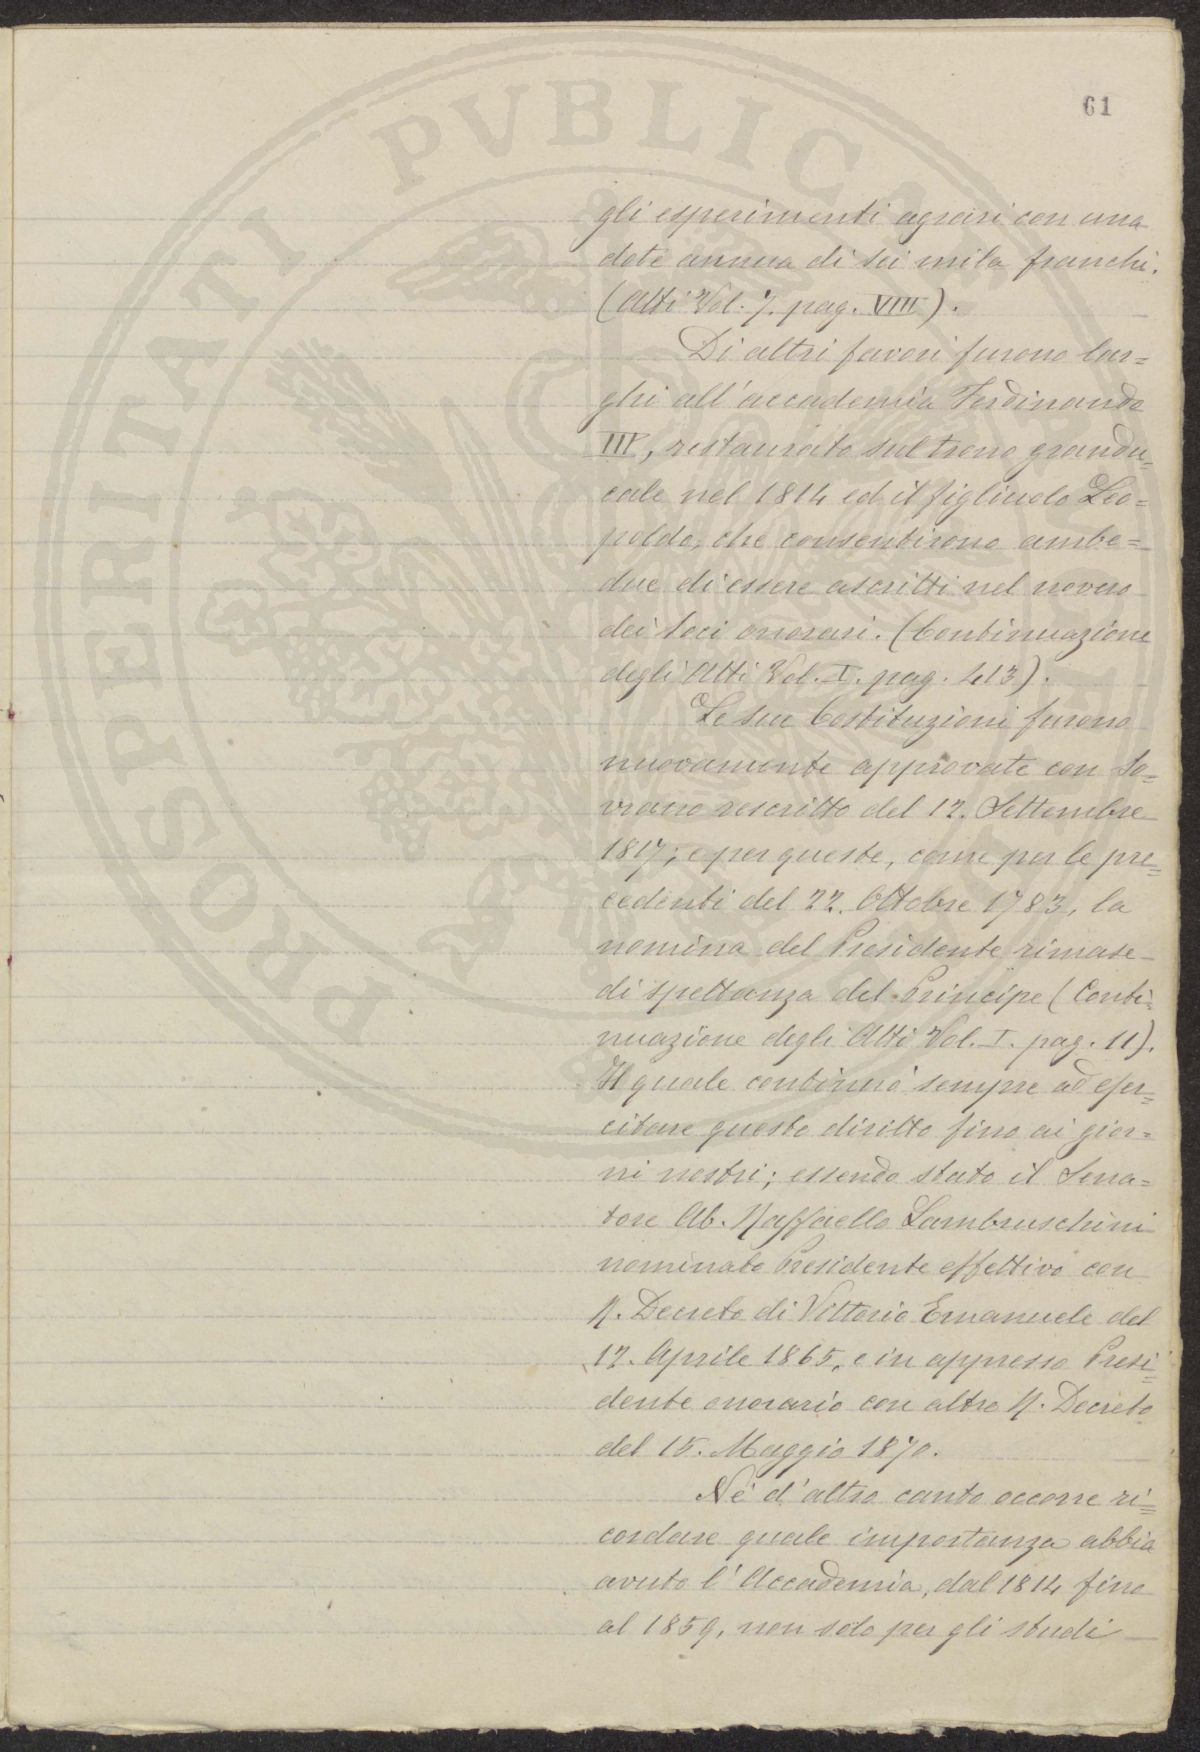 61
gli esperimenti agrari con una
dote annua di sei mila franchi.
(Atti Vol. 7. pag. VIII).
Di altri favori furono lar=
ghi all'accademia Ferdinando
III, restaurato sul trono grandu=
cale nel 1814 ed il figliuolo Leo=
poldo, che consentirono ambe=
due di essere ascritti nel novero
dei soci onorari. (Continuazione
degli Atti Vol. I. pag. 413).
Le sue Costituzioni furono
nuovamente approvate con So=
vrano rescritto del 12. Settembre
1817; e per queste, come per le pre=
cedenti del 22. Ottobre 1783, la
nomina del Presidente rimase
di spettanza del Principe (Conti=
nuazione degli Atti Vol. I. pag. 11).
Il quale continuò sempre ad eser=
citare questo diritto fino ai gior=
ni nostri; essendo stato il Sena=
tore Ab. Raffaello Lambruschini
nominato Presidente effettivo con
R. Decreto di Vittorio Emanuele del
12. Aprile 1865, e in appresso Presi=
dente onorario con altro R. Decreto
del 15. Maggio 1870.
Nè d'altro canto occorre ri=
cordare quale importanza abbia
avuto l'Accademia, dal 1814 fino
al 1859, non solo per gli studi
PROSPERITATI PVBLICAE